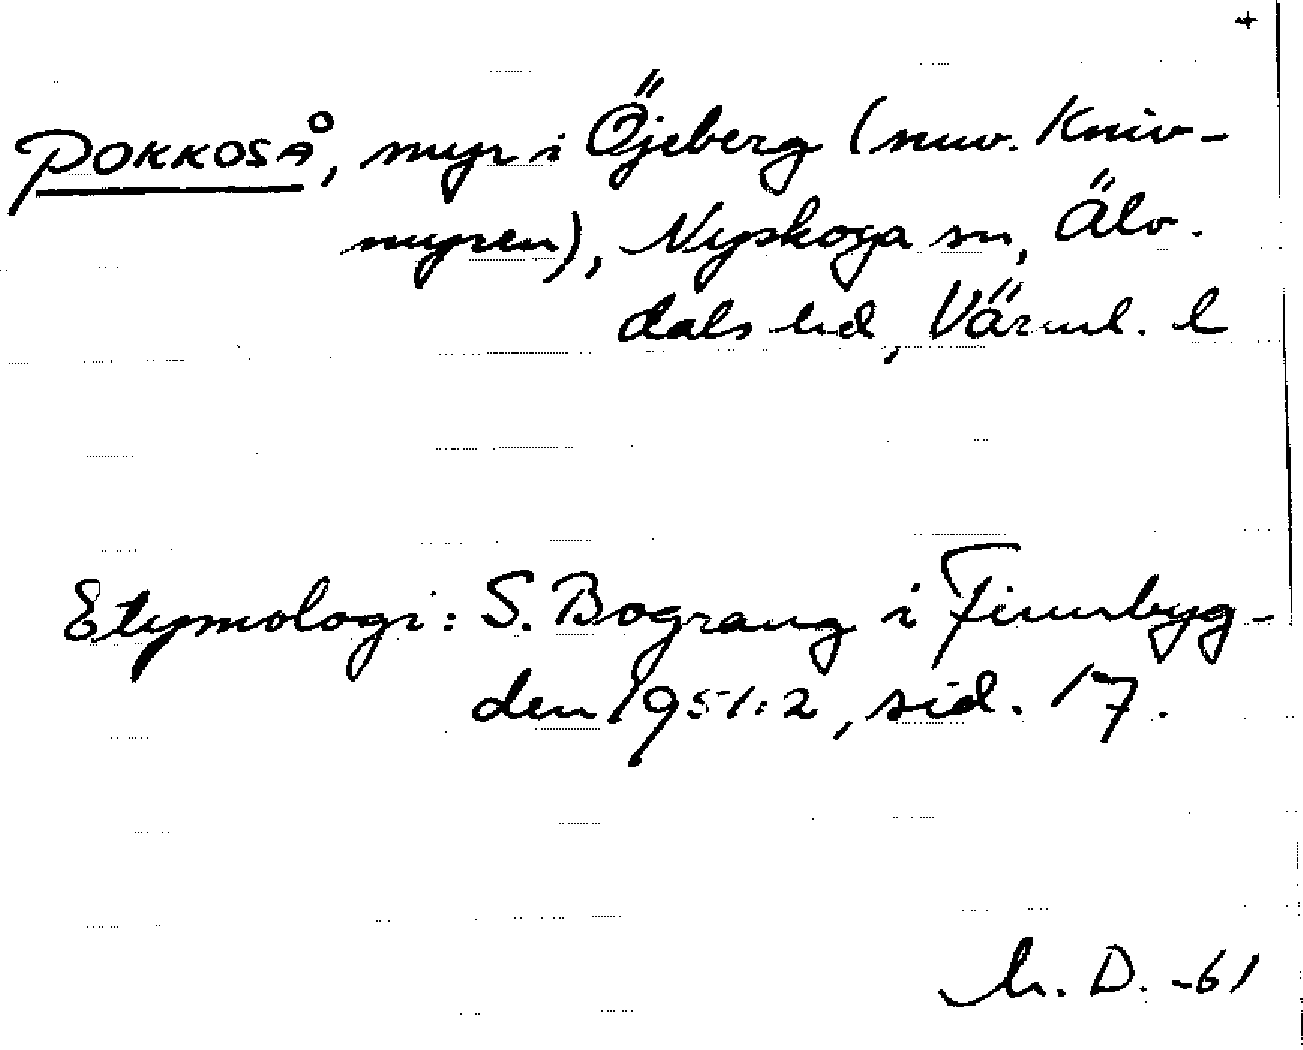 +
POKKOSÅ, myr i Öjeberg (nuv. Kniv-
myren), Nyskoga sn, Älv.
dals hd, Värml. l
Etymologi: S. Bograng i Finnbyg-
den 1951:2, sid. 17.
D. -61